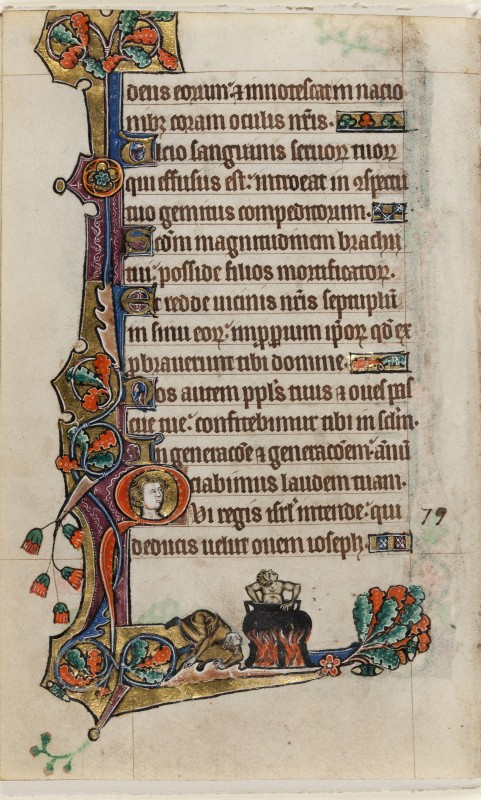 deus eorum: ⁊ innotescat in nacio
nibꝫ coram oculis nr̄is.
Ulcio sanguinis seruoꝝ tuoꝝ
qui effusus est: introeat in ꝯspectu
tuo gemitus compeditorum.
Scd̄m magnitudinem brachii
tui: posside filios mortificatoꝝ.
Et redde uicinis nr̄is septuplū
in sinu eoꝝ: inproperium ip̄oꝝ qd̄ ex
probrauerunt tibi domine.
Nos autem ppl̄s tuus ⁊ oues pas
cue tue: confitebimur tibi in sc̄lm.
In generacōe ⁊ generacōem: annū
ciabimus laudem tuam.
Qui regis isrl̄ intende: qui
deducis uelut ouem ioseph.
79